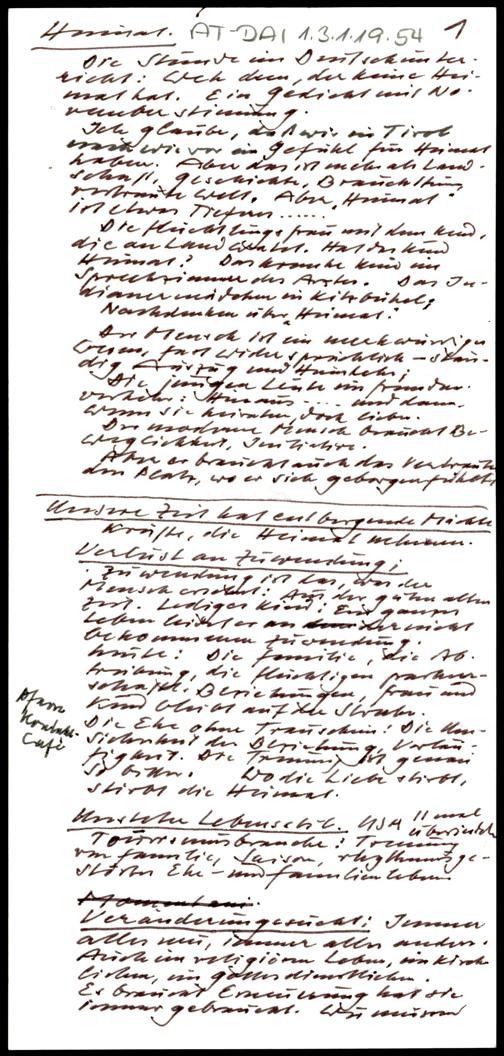 Heimat. AT-DAI 1.3.1.19.54 1
Die Stunde im Deutschunter-
richt: Weh dem, der keine Hei-
mat hat. Ein Gedicht mit No-
vemberstimmung.
Ich glaube, daß wir in Tirol
nach wie vor ein Gefühl für Heimat
haben. Aber das ist mehr als Land-
schaft, Geschichte, Brauchtum,
vertraute Welt. Aber „Heimat"
ist etwas Tieferes ......
Die Flüchtlingsfrau mit dem Kind,
die an Land Hat das Kind
Heimat? Das kranke Kind im
Sprechzimmer des Arztes. Das In-
dianermädchen in Kitzbühel,
Nachdenken über „Heimat."
Der Mensch ist ein merkwürdiges
Wesen, fast widersprüchlich – stän-
dig Auszug und Heimkehr;
Die jungen Leute im Fremden-
verkehr: Hinaus .... und dann,
wenn sie heiraten, doch lieber.
Der moderne Mensch braucht Be-
weglichkeit, Initiative.
Aber er braucht auch das Vertraute
den Platz, wo er sich geborgen fühlt
Unsere Zeit hat entbergende Mächte
Kräfte, die Heimat nehmen.
Verlust an Zuwendung;
Zuwendung ist das, was der
Mensch ersehnt! Aus der guten alten
Zeit. Lediges Kind: Ein ganzes
Leben leidet er an der nicht
bekommenen Zuwendung.
heute: Die Familie, die Ab-
treibung, die flüchtigen partner-
schaftl. Beziehungen, Frau und
Kind bleibt auf der Strecke.
Pfarr
Kontakt-
Café
Die Ehe ohne Trauschein: Die Un-
sicherheit der Beziehung, Vorläu-
figkeit. Die Trennung ist genau
so bitter. Wo die Liebe stirbt,
stirbt die Heimat.
Unstete Lebensstil. USA 11 mal
übersiedeln
Tourismusbranche: Trennung
von Familie, Saison, rhythmusge-
störtes Ehe- und Familienleben
Veränderungssucht: Immer
alles neu, immer alles anders.
Auch im religiösen Leben, im kirch-
lichen, im gottesdienstlichen.
Es braucht Erneuerung hat sie
immer gebraucht. Wir müssen